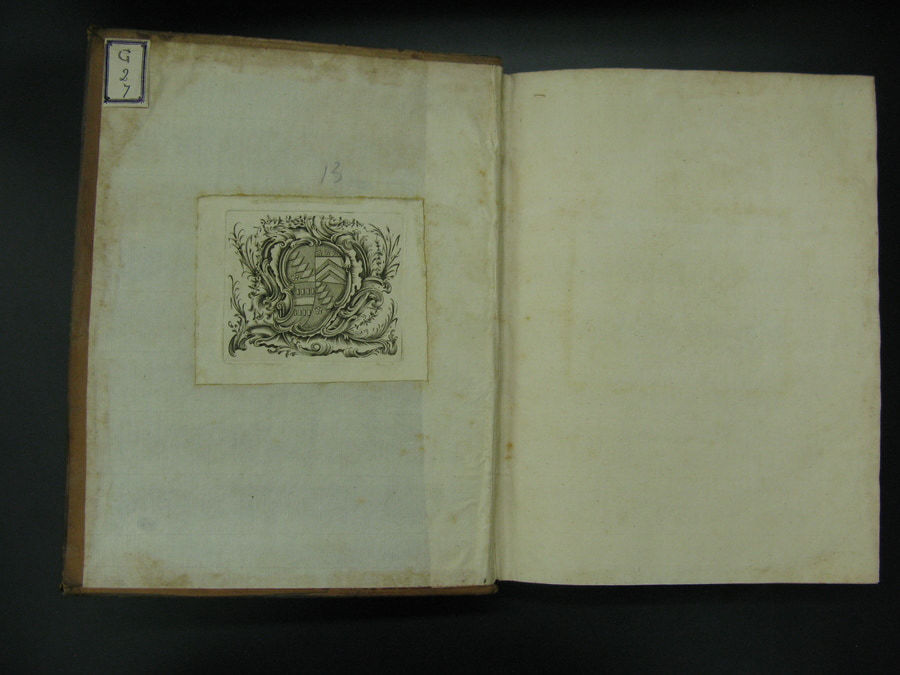 G
2
7
13